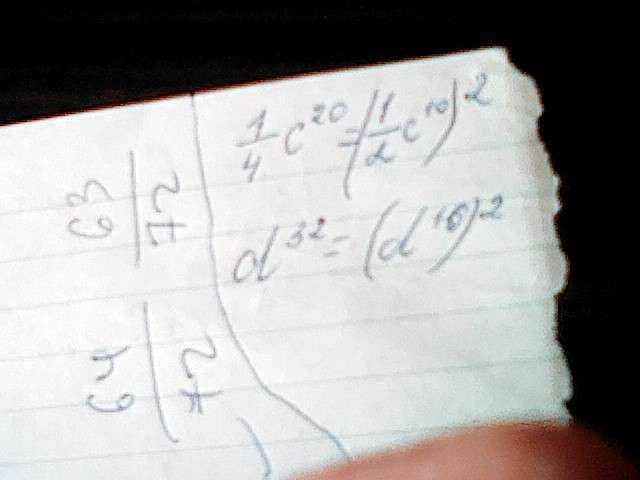 1/4 c²⁰ = (1/2 c¹⁰)²
d³² = (d¹⁶)²
63/72
64/72